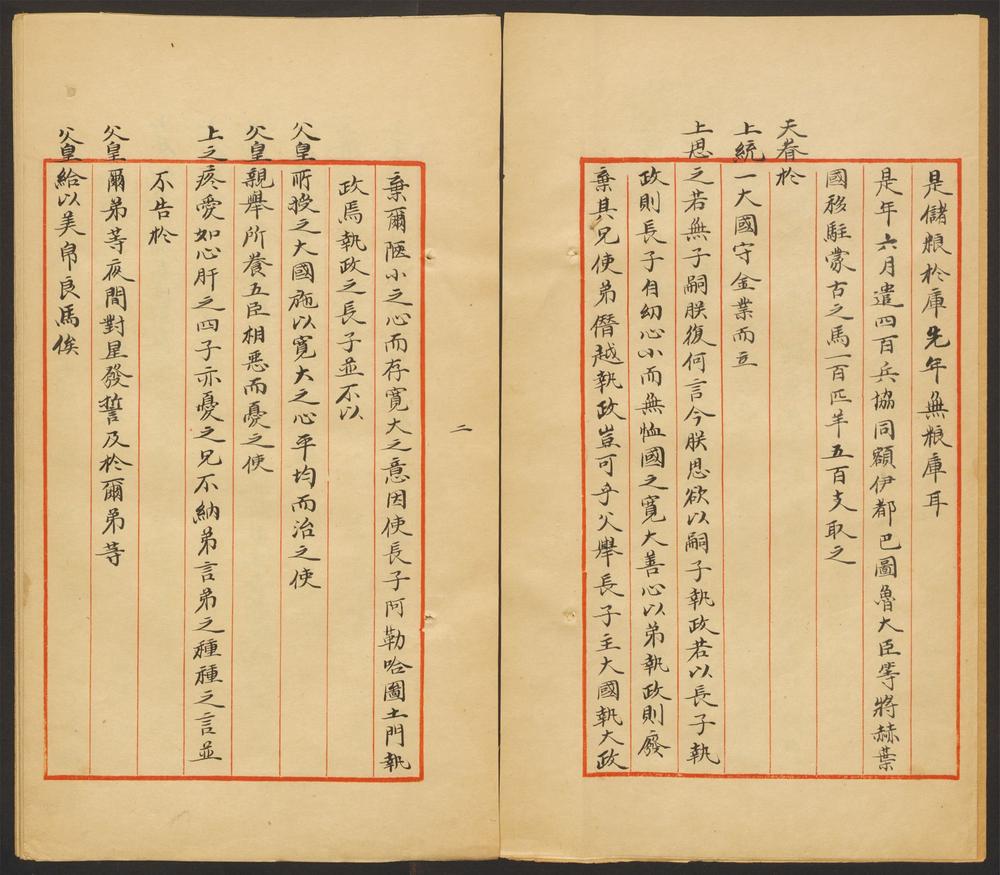 是儲粮於庫先年無粮庫耳
是年六月遣四百兵協同額伊都巴圖魯大臣等將赫葉
國移駐蒙古之馬一百匹羊五百支取之
天眷於
上統一大國守金業而立
上思之若無子嗣朕復何言今朕思欲以嗣子執政若以長子執
政則長子自幼心小而無恤國之寬大善心以弟執政則廢
棄其兄使弟僭越執政豈可乎父舉長子主大國執大政
二
棄爾陋小之心而存寬大之意因使長子阿勒哈圖土門執
政焉執政之長子並不以
父皇所授之大國施以寬大之心平均而治之使
父皇親舉所養五臣相惡而憂之使
上之疼愛如心肝之四子亦憂之兄不納弟言弟之種種之言並
不告於
父皇爾弟等夜間對星發誓及於爾弟等
父皇給以美帛良馬俟